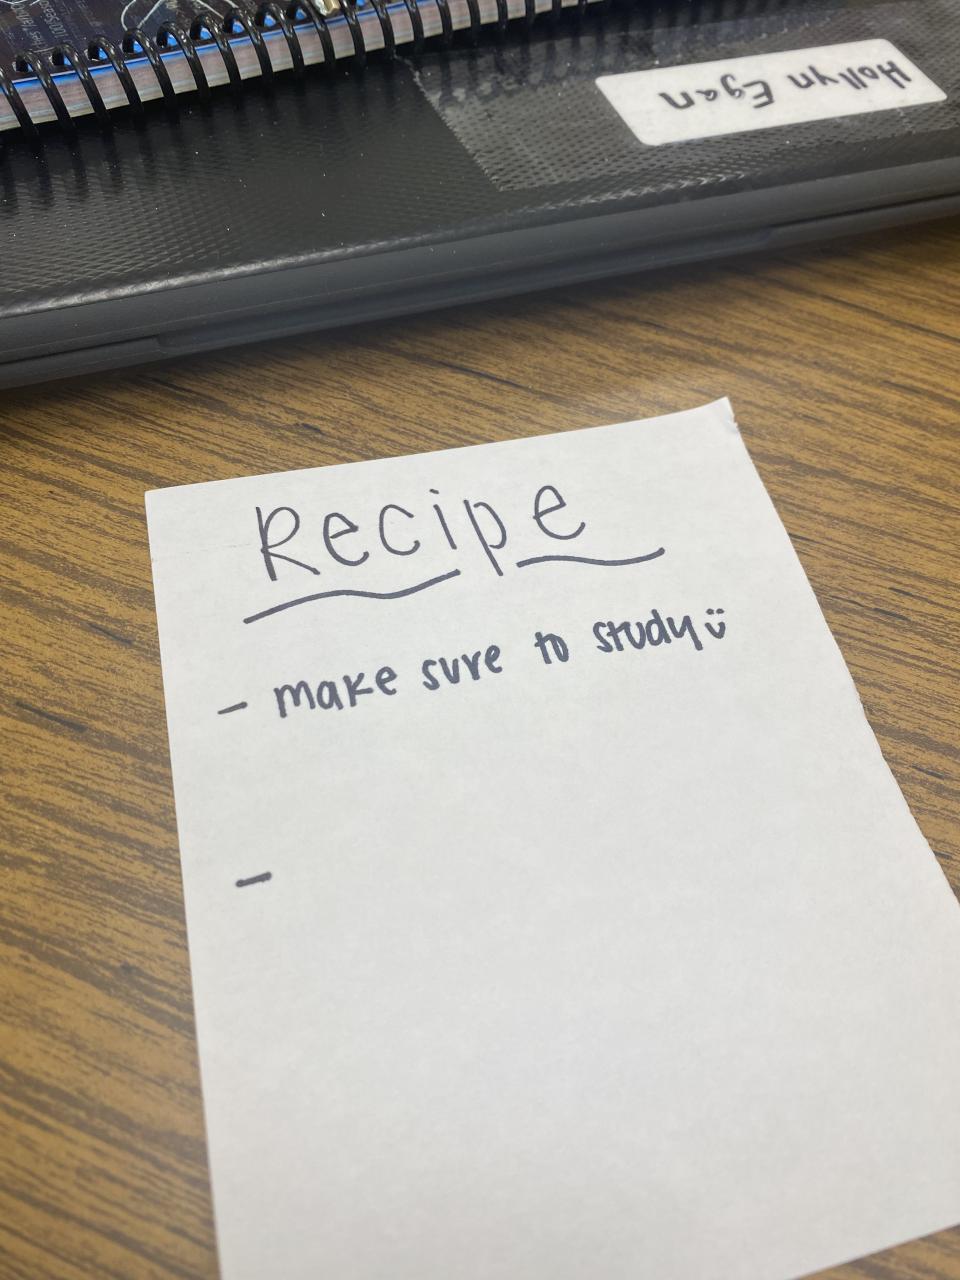 Hollyn Egan
Recipe
- make sure to study ü
-